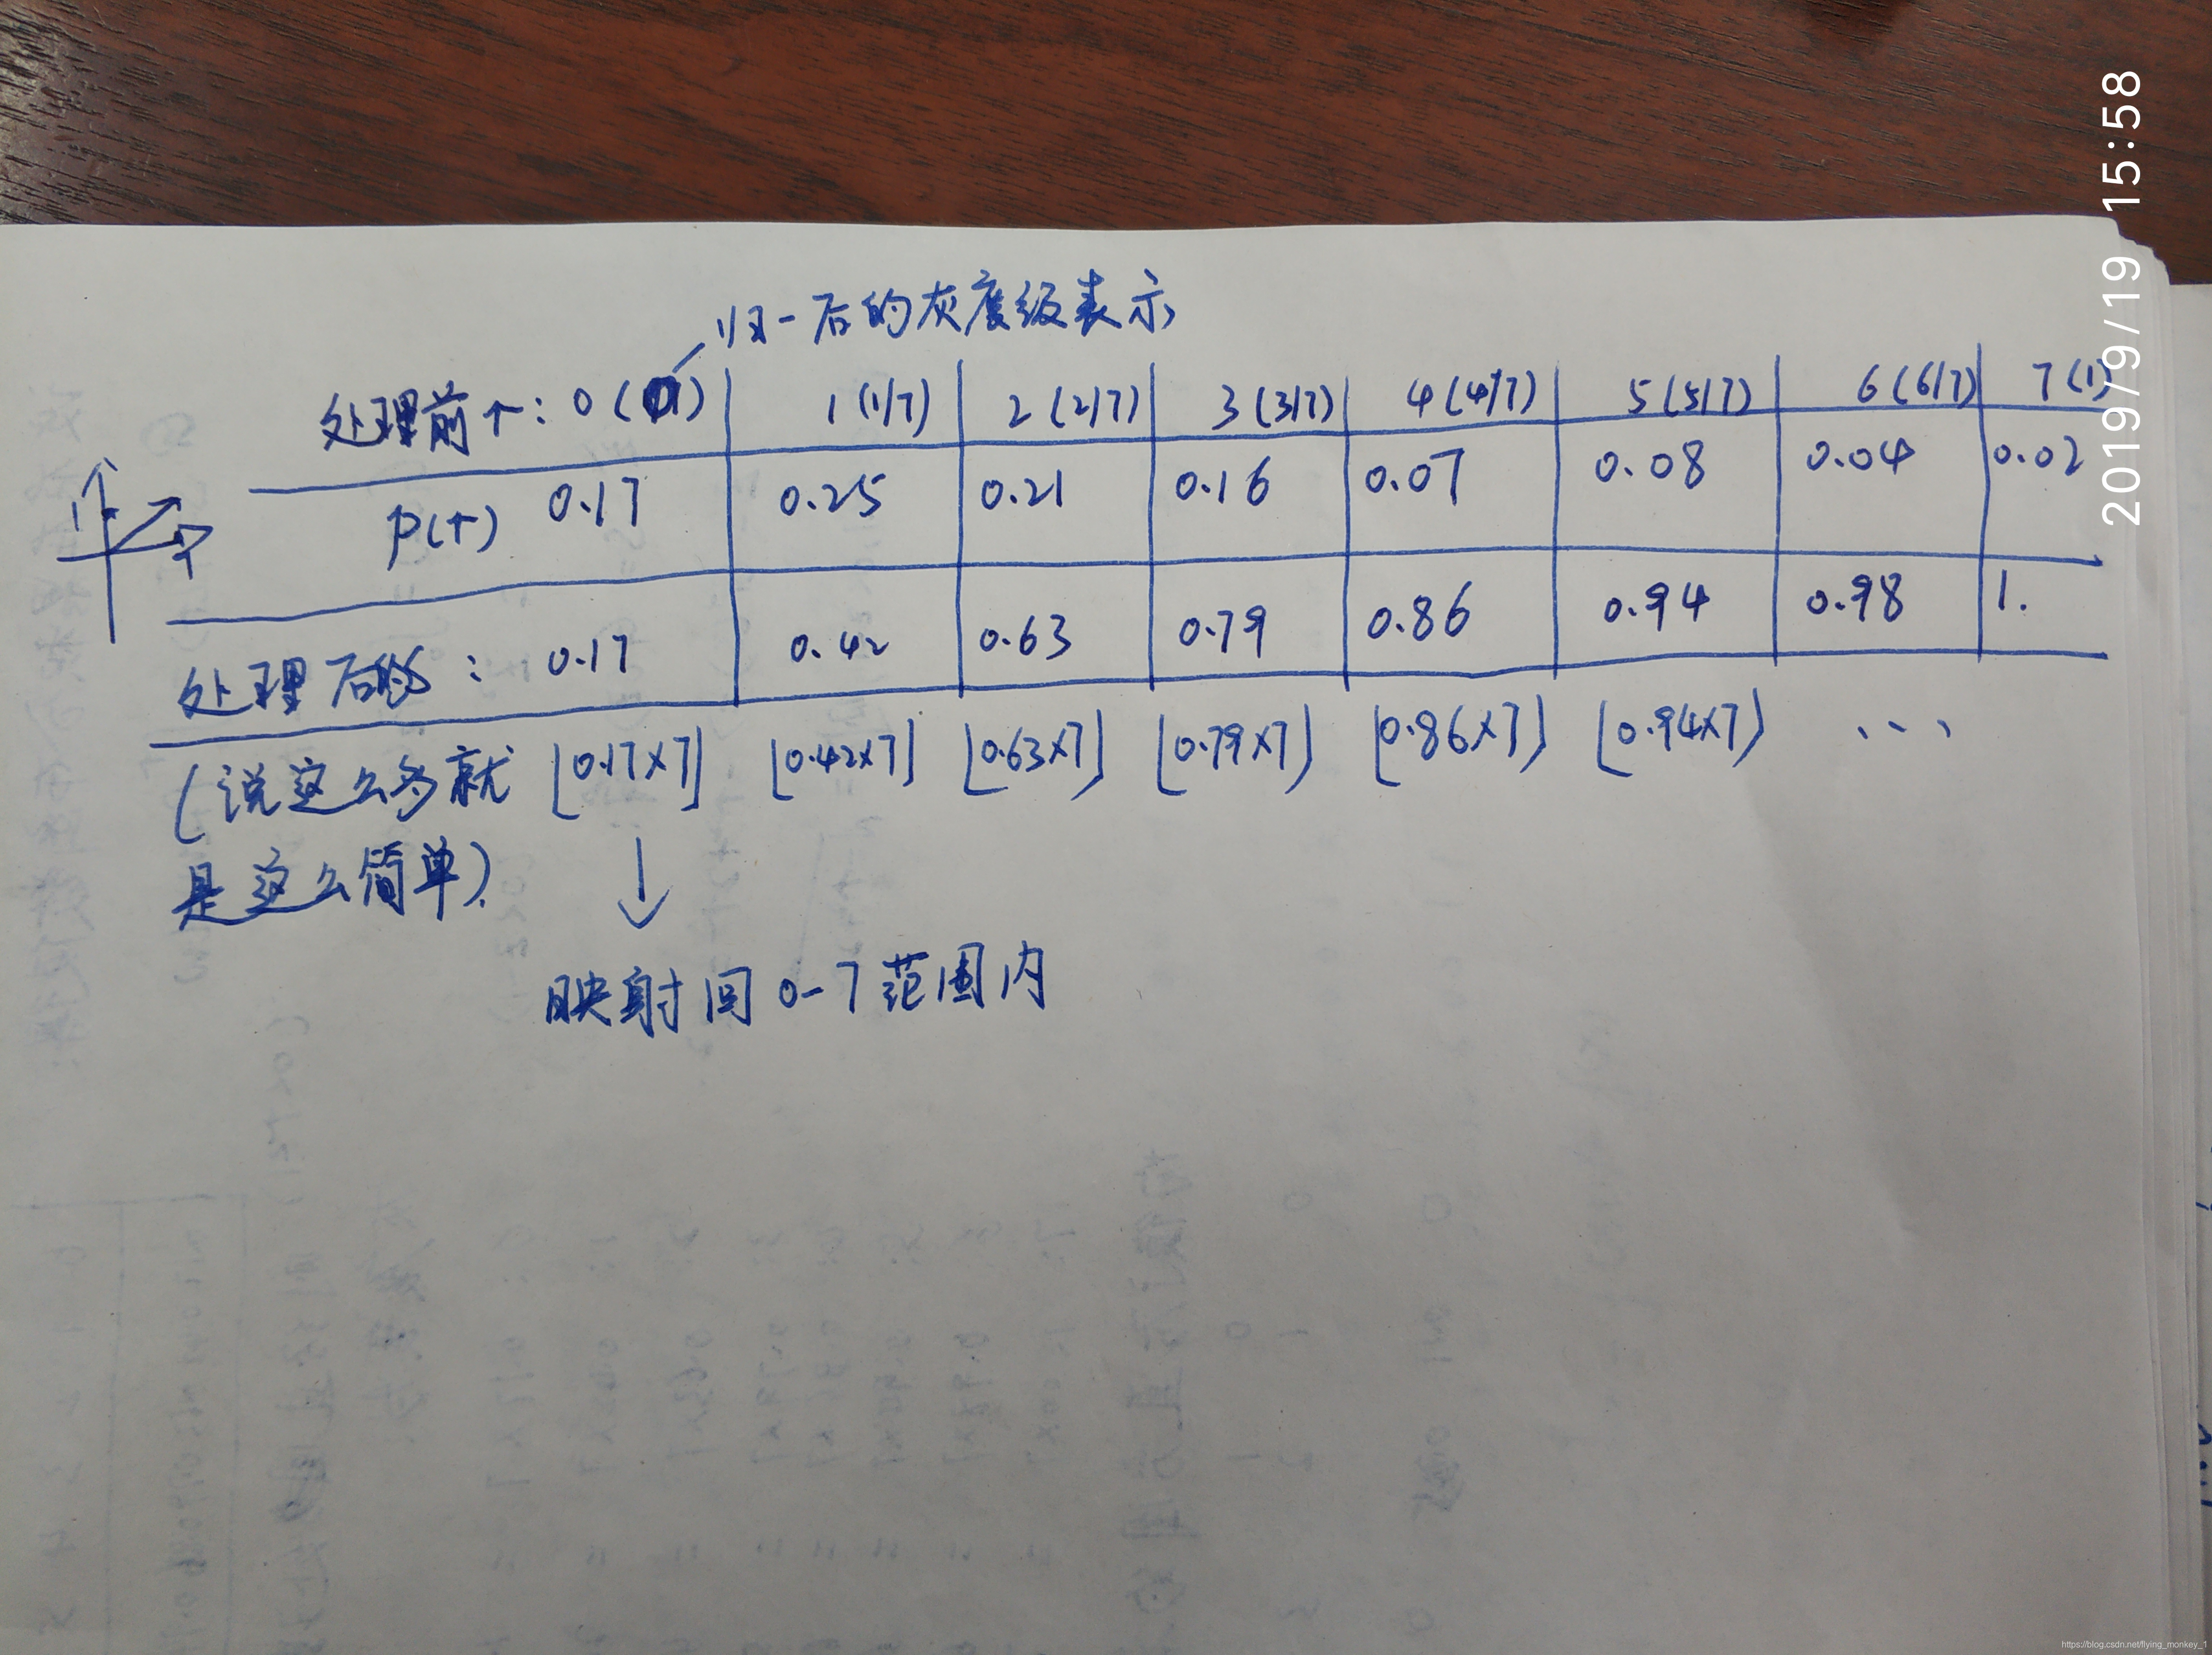 归一后的灰度级表示
处理前r: 0 ( ) 1 (1/7) 2 (2/7) 3 (3/7) 4 (4/7) 5 (5/7) 6 (6/7) 7 (1)
p(r) 0.17 0.25 0.21 0.16 0.07 0.08 0.04 0.02
处理后的S : 0.17 0.42 0.63 0.79 0.86 0.94 0.98 1.
(说这么多就 [0.17×7] [0.42×7] [0.63×7] [0.79×7] [0.86×7] [0.94×7] ...
是这么简单).
映射回 0-7 范围内
2019/9/19 15:58
https://blog.csdn.net/flying_monkey_1